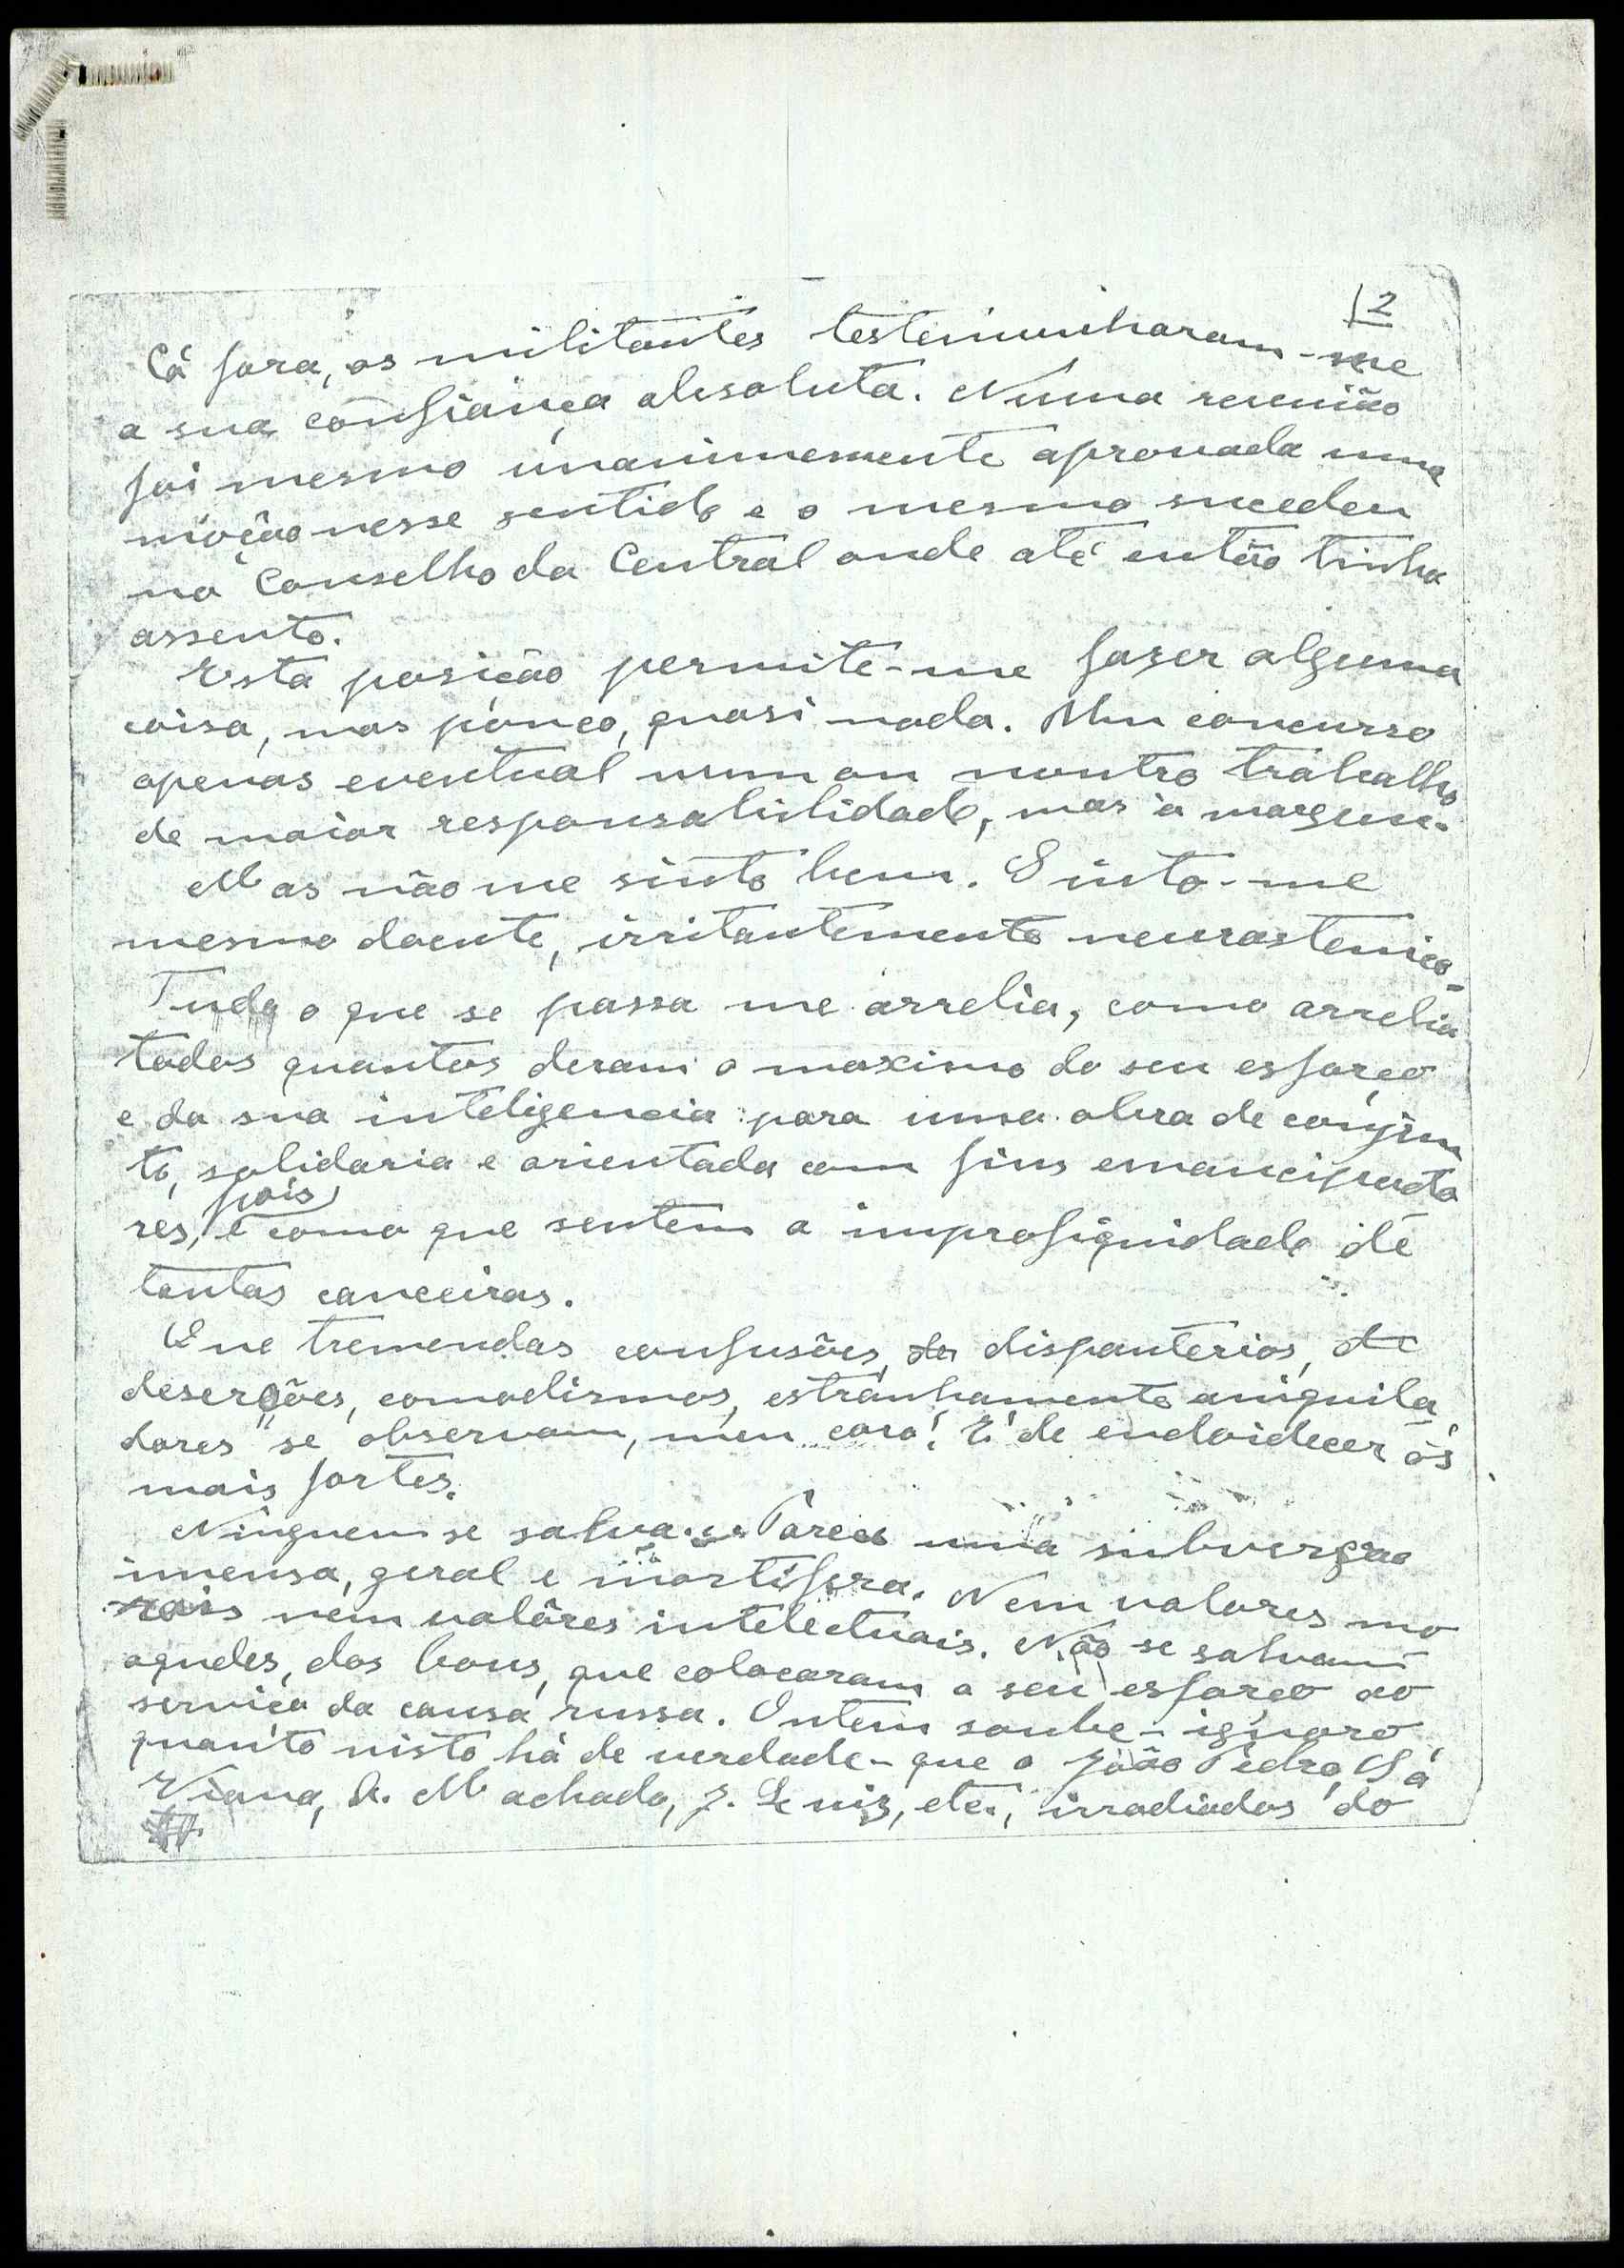 2
Cá fora, os militantes testemunharam-me
a sua confiança absoluta. Numa reunião
foi mesmo unanimemente aprovada uma
moção nesse sentido e o mesmo sucedeu
no Conselho da Central onde até então tinha
assento.
Esta posição permite-me fazer alguma
coisa, mas pouco, quasi nada. Um concurso
apenas eventual num ou noutro trabalho
de maior responsabilidade, mas à margem.
Mas não me sinto bem. Sinto-me
mesmo doente, irritantemente neurastenico.
Tudo o que se passa me arrelia, como arrelia
todos quantos deram o maximo do seu esforço
e da sua inteligencia para uma obra de conjun
to, solidaria e orientada com fins emancipado
pois
res, é como que sentem a improfiquidade de
tantas canceiras.
Que tremendas confusões, de dispauterios, de
deserções, comodismos, estranhamente aniquila
dores se observam, meu caro! É de endoidecer os
mais fortes.
Ninguem se salva. Parece uma subverção
imensa, geral e mortifera. Nem valores mo
rais nem valôres intelectuais. Não se salvam
aqueles, dos bons, que colocaram o seu esforço ao
serviço da causa russa. Ontem soube - ignoro
quanto nisto há de verdade - que o João Pedro, Sá
Viana, A. Machado, J. Luiz, etc., irradiados do